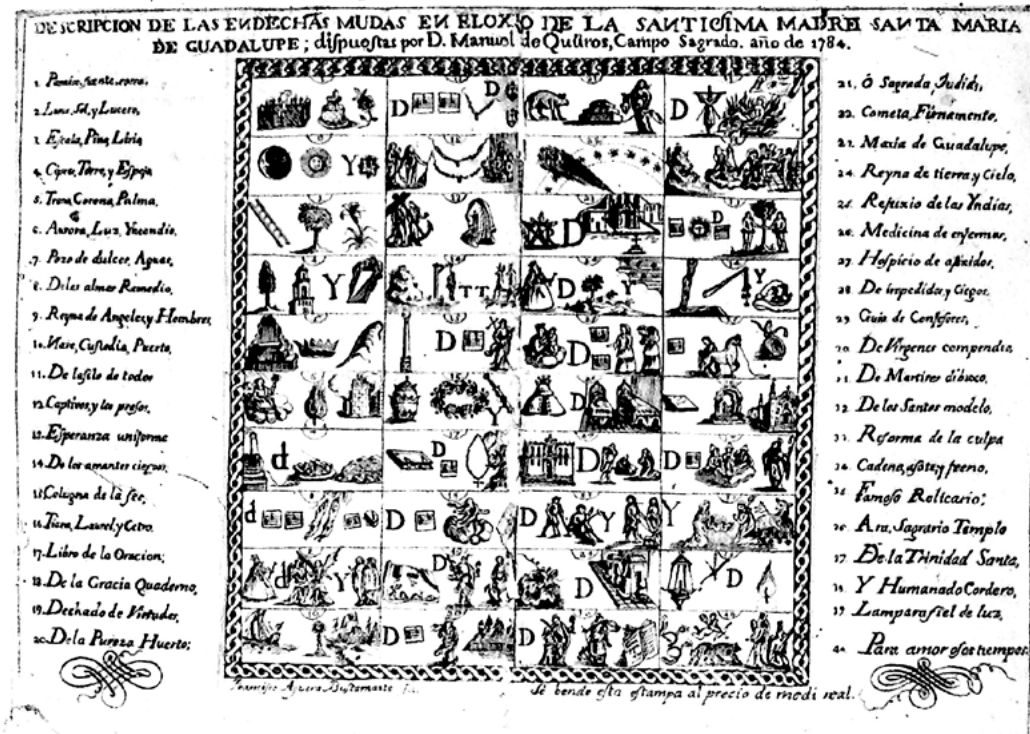 DESCRIPCION DE LAS ENDECHAS MUDAS EN ELOXIO DE LA SANTISIMA MADRE SANTA MARIA
DE GUADALUPE; dispuestas por D. Manuel de Quiros, Campo Sagrado. año de 1784.
1.
2. Luna, Sol, y Lucero,
3. Escala, Pina, Liria
4. Cipres, Torre, y Espejo
5. Trono, Corona, Palma,
6. Aurora, Luz, Yncendio,
7. Pozo de dulces, Aguas,
8. De las almas Remedio,
9. Reyna de Angeles, y Hombres,
10. Nave, Custodia, Puerto,
11. De todos
12. Captivos, y los presos,
13. Esperanza uniforme
14. De los amantes ciegos,
15. Colugna de la fee,
16. Tiara, Laurel, y Cetro.
17. Libro de la Oracion;
18. De la Gracia Quaderno,
19. Dechado de Virtudes,
20. De la Pureza Huerto;
D D
D
Y
D
Y
T T
D
Y
D
D
Y
D
d
D
D
D
d
D
D
Y
Y
d
Y
D
D
D
D
D
21. ô Sagrada Judids,
22. Cometa, Firnamento,
23. Maria de Guadalupe,
24. Reyna de tierra, y Cielo,
25. Refuxio de las Yndias,
26. Medicina de enfermas,
27. Hospicio de
28. De impedidos, y Ciegos,
29. Guia de Confesores,
30. De Virgenes compendio,
31. De Martires dibuxo,
32. De los Santos modelo,
33. Reforma de la culpa
34. Cadena, asote, y freno,
35. Famoso Relicario;
36. Ara, Sagrario Templo
37. De la Trinidad Santa,
38. Y Humanado Cordero,
39. Lampara fiel de luz,
40. Para amorosos tiempos.
Francisco Aguera Bustamante
Se bende esta estampa al precio de medi real.